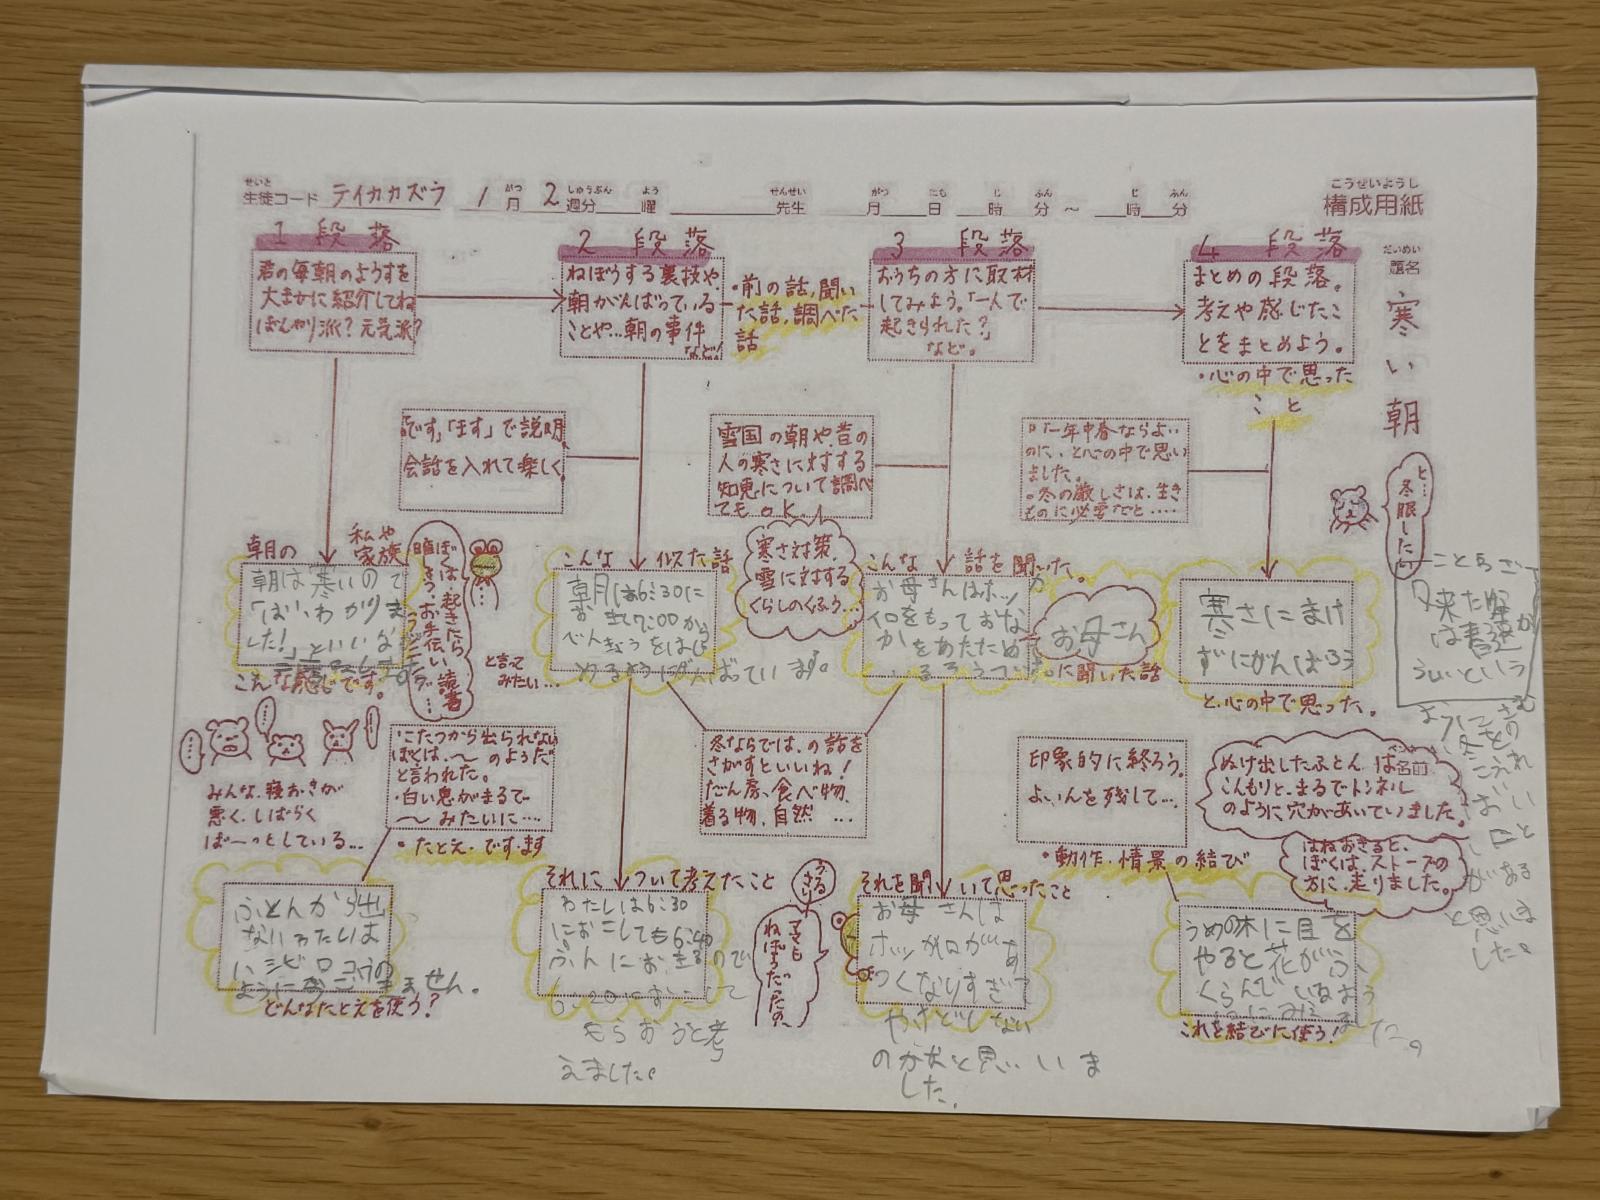 せいと
生徒コード テイカカズラ 1 がつ 月 2 しゅうぶん 週分 よう 曜 せんせい 先生 がつ 月 にち 日 じ 時 ふん 分 ～ じ 時 ふん 分
こうせいようし
構成用紙
だいめい
題名
寒い朝
1 段落
君の毎朝のようすを
大まかに紹介してね
ぼんやり派？元気派？
2 段落
ねぼうする裏技や、
朝がんばっている
ことや…朝の事件
など！
・前の話、聞い
た話、調べた
話
3 段落
おうちの方に取材
してみよう。「一人で
起きられた？」
など。
4 段落
まとめの段落。
考えや感じたこ
とをまとめよう。
・心の中で思った
こと
「です」「ます」で説明。
会話を入れて楽しく
雪国の朝や、昔の
人の寒さに対する
知恵について調べ
てもOK。
「一年中春ならよい
のに」、と心の中で思い
ました。
。冬の厳しさは、生き
ものに必要だと……
と…冬眠したり
朝の
私や
家族
朝は寒いので
「はい、わかりま
した！」といい
こんな感じです。
ぼくは、起きたら
お手伝い、読書
と言って
みたい…
こんな 似た話
朝は6:30に
お きて7:00から
べんきょうをはじ
めるようにがんばっています。
寒さ対策、
雪に対する
くらしのくふう…
こんな 話を聞いた。
お母さんはホッカ
イロをもっておな
かをあたため
お母さん
に聞いた話
寒さにまけ
ずにがんばろう
と、心の中で思った。
みんな、寝おきが
悪く、しばらく
ぼーっとしている…
・こたつから出られない
ぼくは、～のようだ
と言われた。
・白い息がまるで
～みたいに…
・たとえ・です・ます
冬ならでは、の話を
さがすといいね！
だん房、食べ物、
着る物、自然 …
印象的に終ろう。
よいんを残して…。
・動作・情景の結び
ぬけ出したふとんは名前
こんもりと、まるでトンネル
のように穴があいていました。
はねおきると、
ぼくは、ストーブの
方に、走りました。
ふとんから出
ないわたしは
どんなたとえを使う？
それについて考えたこと
わたしは6:30
におこしても6:40
ふんにおきるので
6:20におこして
もらおうと考
えました。
うるさい
ママも
ねぼうだったの、
それを聞いて思ったこと
お母さんは
ホッカイロがあ
つくなりすぎて
やけどしない
のかなと思いま
した。
うめの木に目を
やると花がふ
くらんで いるよう
にみえました。
これを結びに使う！
があると
と思いま
した。